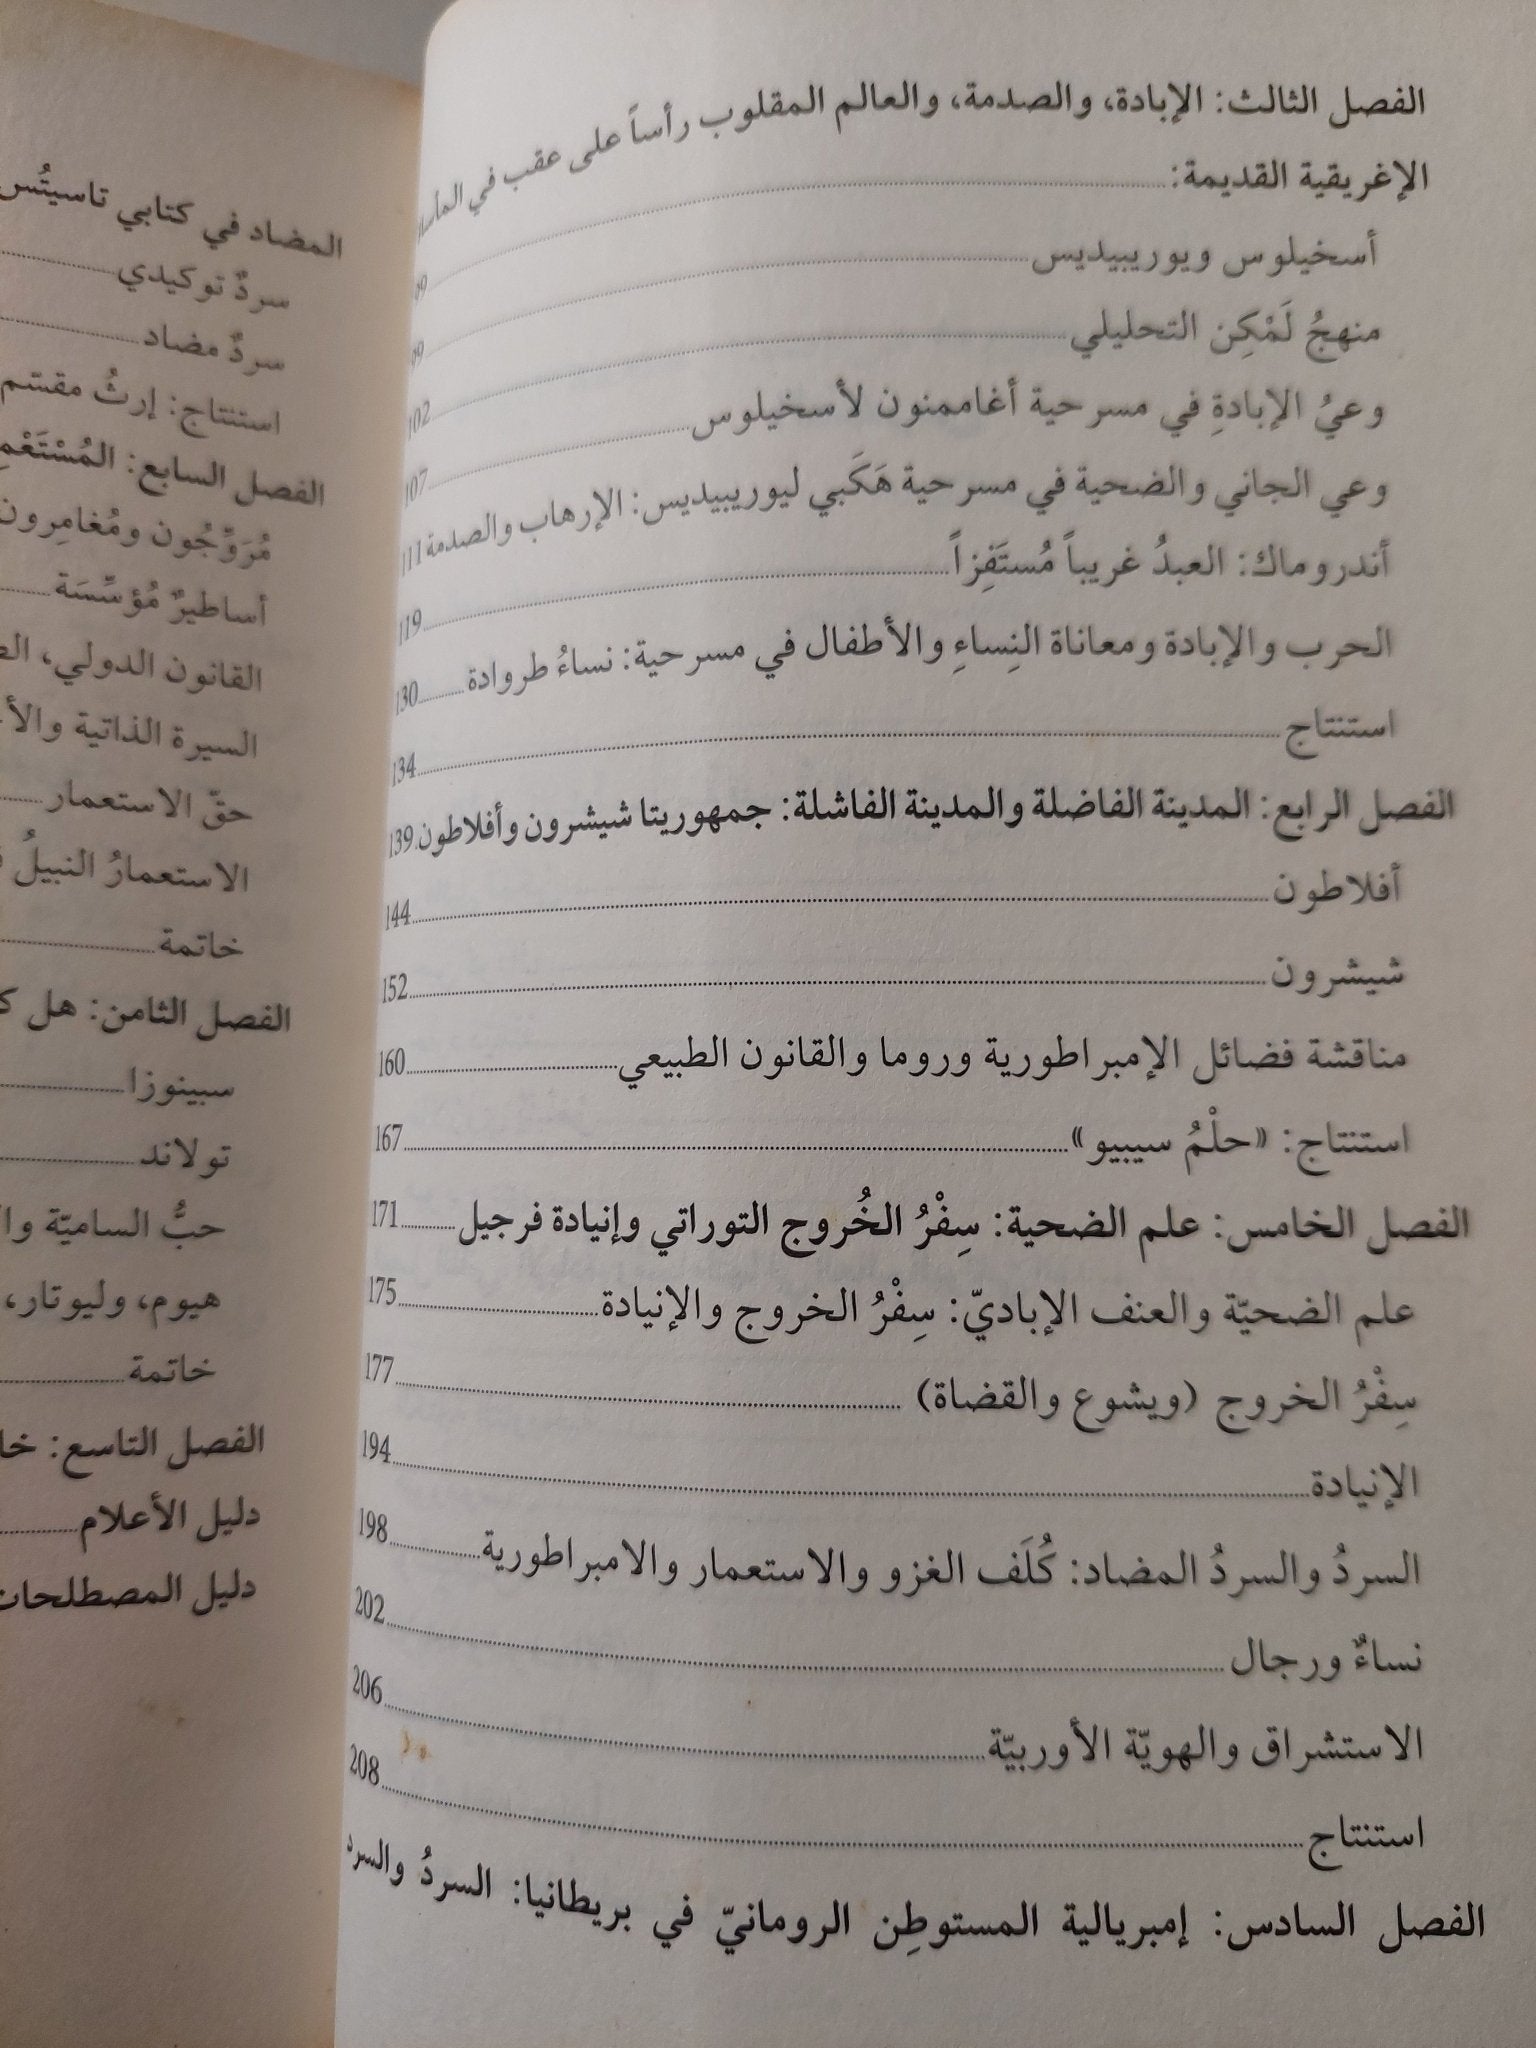 الفصل الثالث: الإبادة، والصدمة، والعالم المقلوب رأساً على عقب في
الإغريقية القديمة:
أسخيلوس ويوريبيديس
منهجُ لَمْكِن التحليلي 102
وعيُ الإبادةِ في مسرحية أغاممنون لأسخيلوس 107
وعي الجاني والضحية في مسرحية هَكَبي ليوريبيديس: الإرهاب والصدمة 111
أندروماك: العبدُ غريباً مُستَفِزاً 119
الحرب والإبادة ومعاناة النِساءِ والأطفال في مسرحية: نساءُ طروادة 130
استنتاج 134
الفصل الرابع: المدينة الفاضلة والمدينة الفاشلة: جمهوريتا شيشرون وأفلاطون 139
أفلاطون 144
شيشرون 152
مناقشة فضائل الإمبراطورية وروما والقانون الطبيعي 160
استنتاج: «حلْمُ سيبيو» 167
الفصل الخامس: علم الضحية: سِفْرُ الخُروج التوراتي وإنيادة فرجيل 171
علم الضحيّة والعنف الإباديّ: سِفْرُ الخروج والإنيادة 175
سِفْرُ الخروج (ويشوع والقضاة) 177
الإنيادة 194
السردُ والسردُ المضاد: كُلَف الغزو والاستعمار والامبراطورية 198
نساءٌ ورجال 202
الاستشراق والهويّة الأوربيّة 206
استنتاج 208
الفصل السادس: إمبريالية المستوطِن الرومانيّ في بريطانيا: السردُ والسرد
المضاد في كتابي تاسيتُس
سردٌ توكيدي
سردٌ مضاد
استنتاج: إرثُ مقسّم
الفصل السابع:
مُرَوِّجُون ومُغامِرون
أساطيرٌ مُؤسِّسَة
القانون الدولي،
السيرة الذاتية
حقّ الاستعمار
الاستعمارُ النبيلُ
خاتمة
الفصل الثامن: هل
سبينوزا
تولاند
حبُّ الساميّة
هيوم، وليوتار،
خاتمة
الفصل التاسع:
دليل الأعلام
دليل المصطلحات